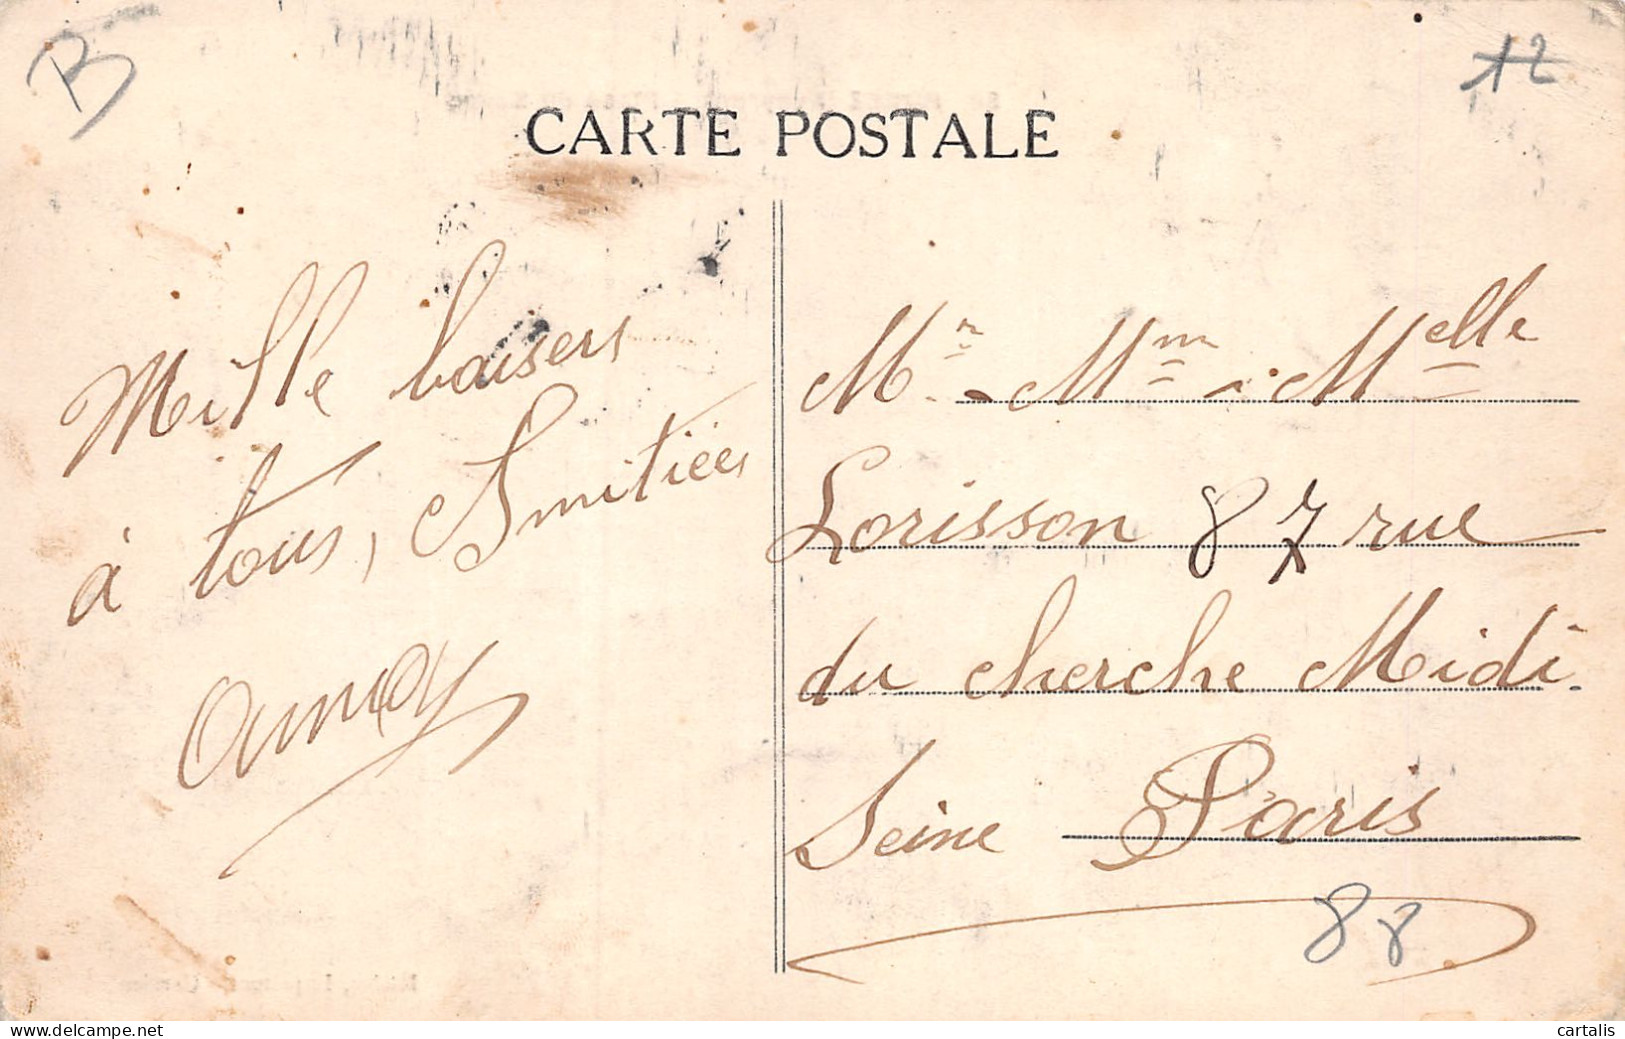 B
12
CARTE POSTALE
Mille baisers
à tous, Amitiées
Mr. Mm. Melle
Lorisson 87 rue
du cherche Midi.
Seine Paris
88
cartalis